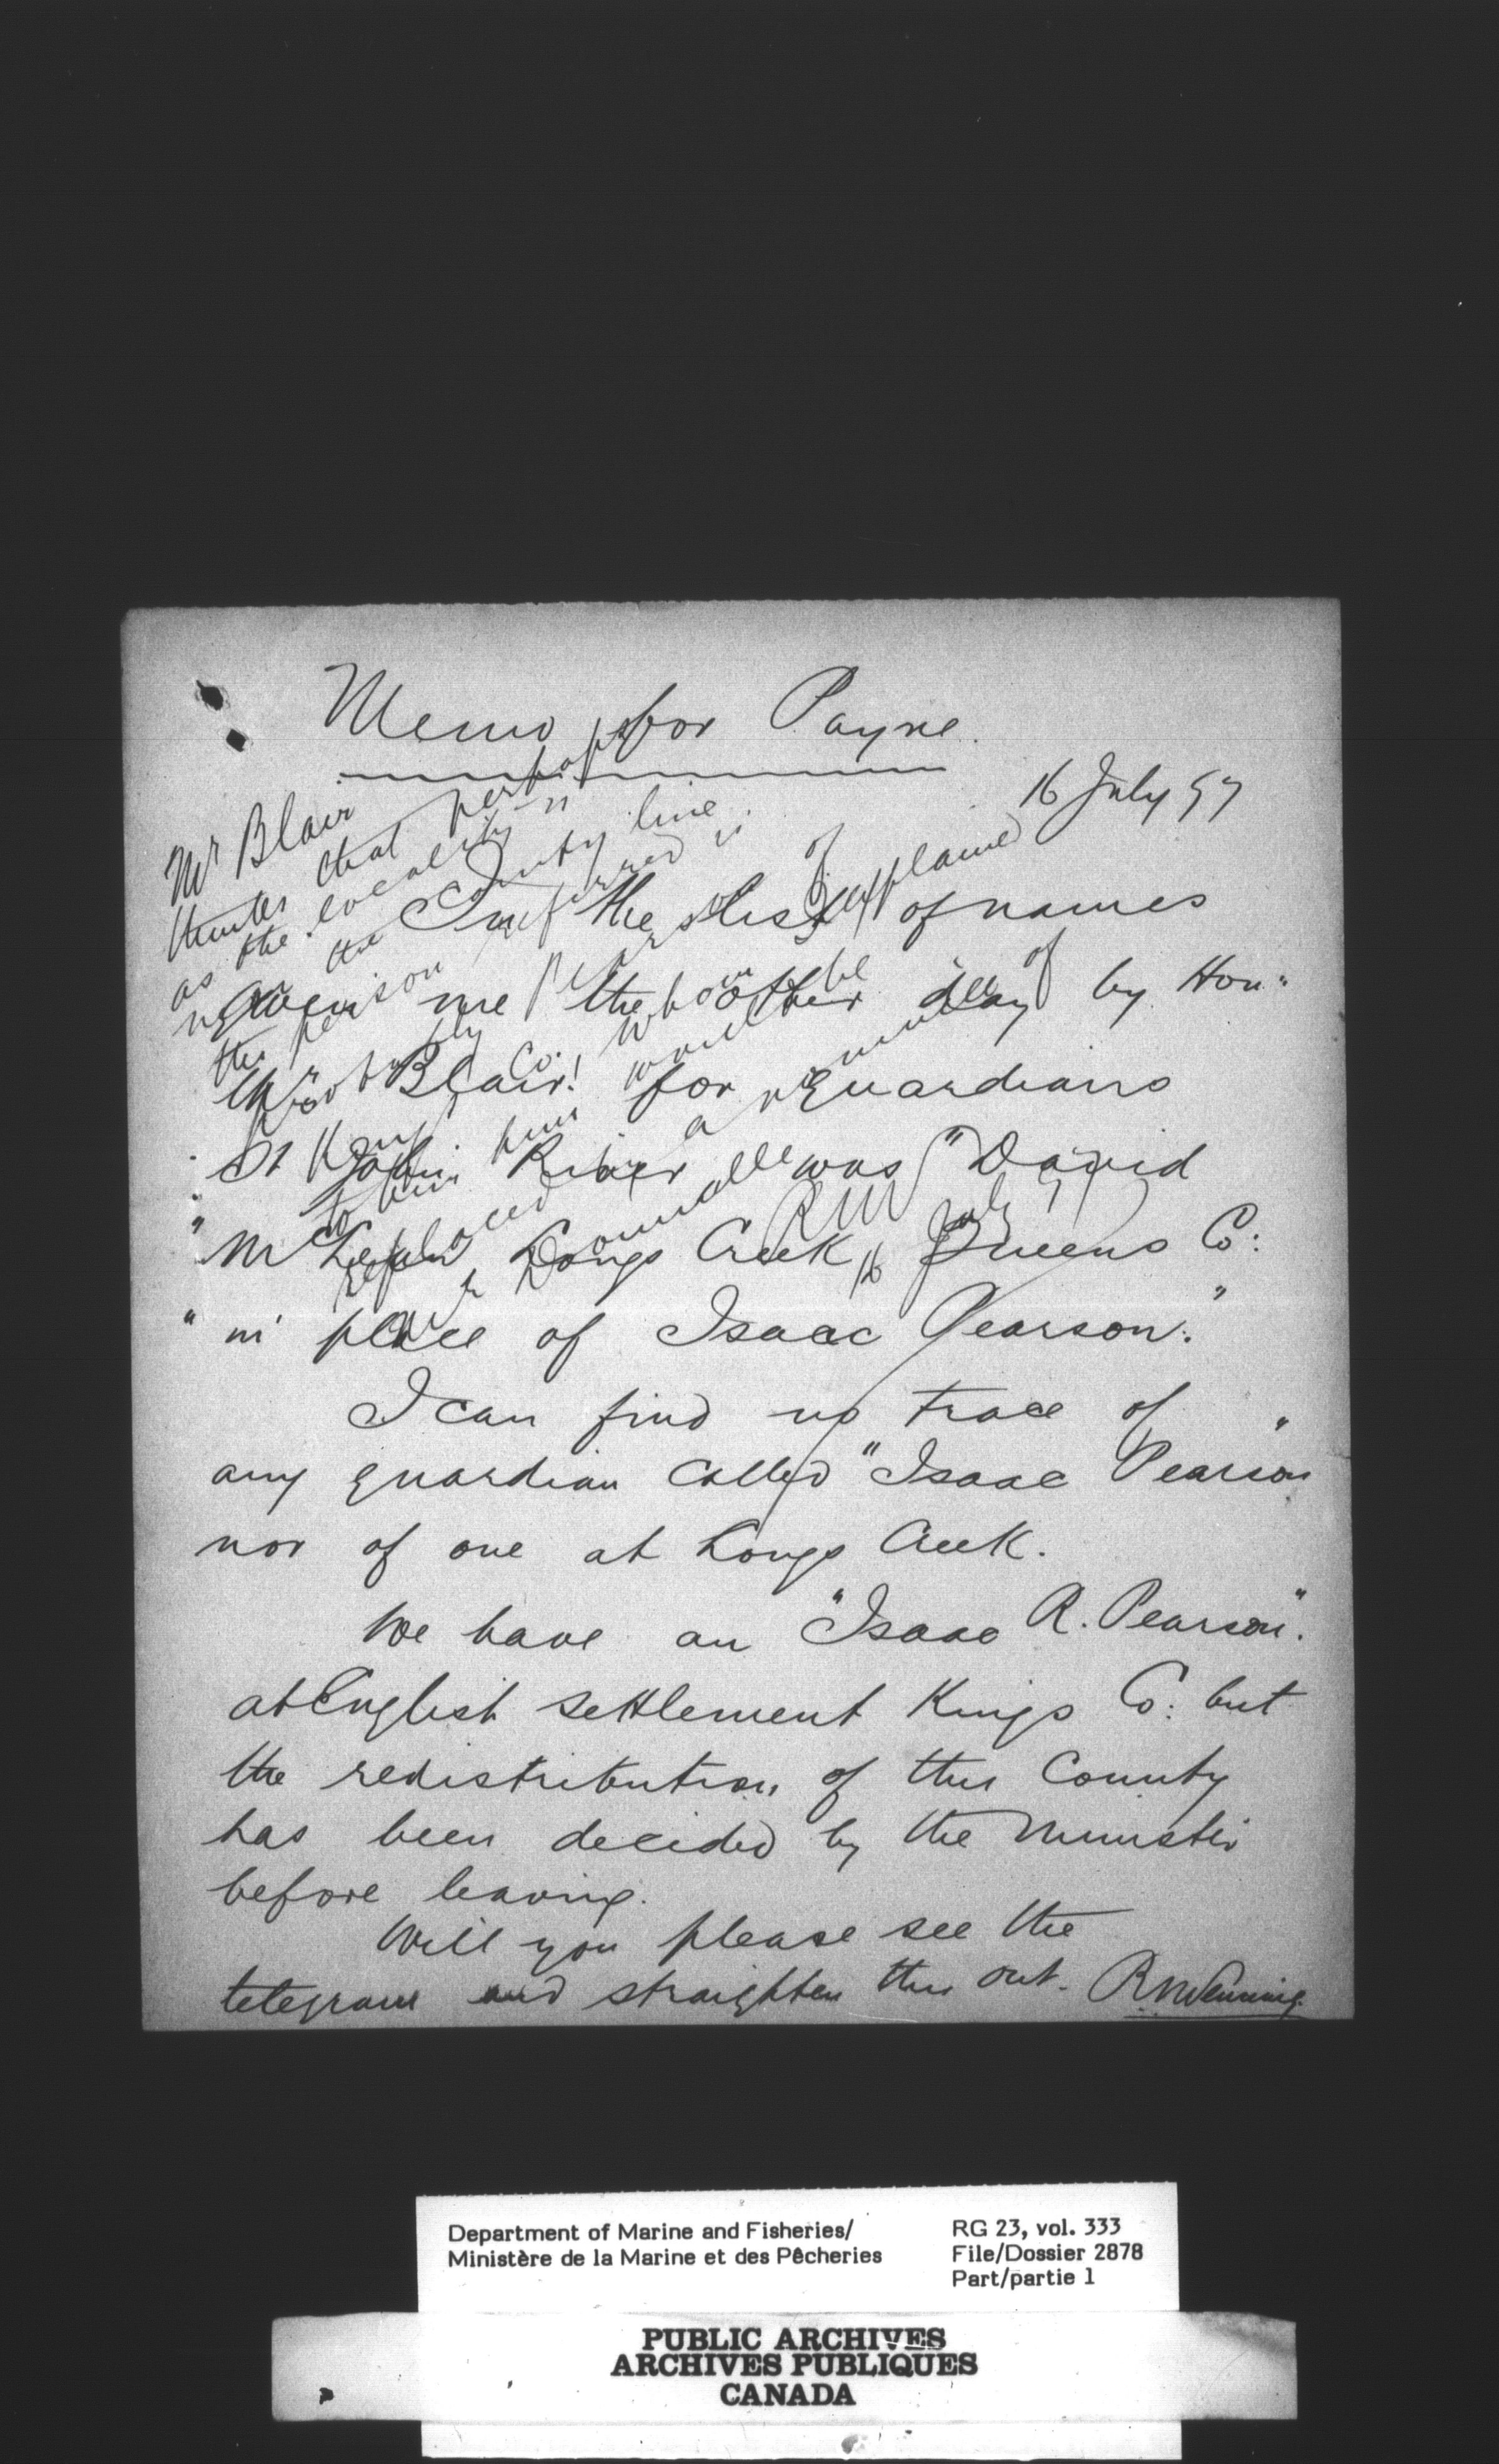 Memo for Payne.
16 July 97
In the list of names
given me the other day by Hon:
Mr Blair for Guardians
St John River was "David
"Mc Longs Creek Queens Co:
"in place of Isaac Pearson."
I can find no trace of
any guardian called "Isaac Pearson"
nor of one at Longs Creek.
We have an "Isaac R. Pearson".
at English settlement Kings Co: but
the redistribution of this County
has been decided by the Minister
before leaving.
Will you please see the
telegram and straighten this out. R N Venning.
Mr Blair
thinks that perhaps
as the locality is
near the County line
the person referred is
probably Pearson of
Kings Co. whom he explained
to him would be
replaced by a nominee of
with Domville
RNV
16 July 97
Department of Marine and Fisheries/
Ministère de la Marine et des Pêcheries
RG 23, vol. 333
File/Dossier 2878
Part/partie 1
PUBLIC ARCHIVES
ARCHIVES PUBLIQUES
CANADA